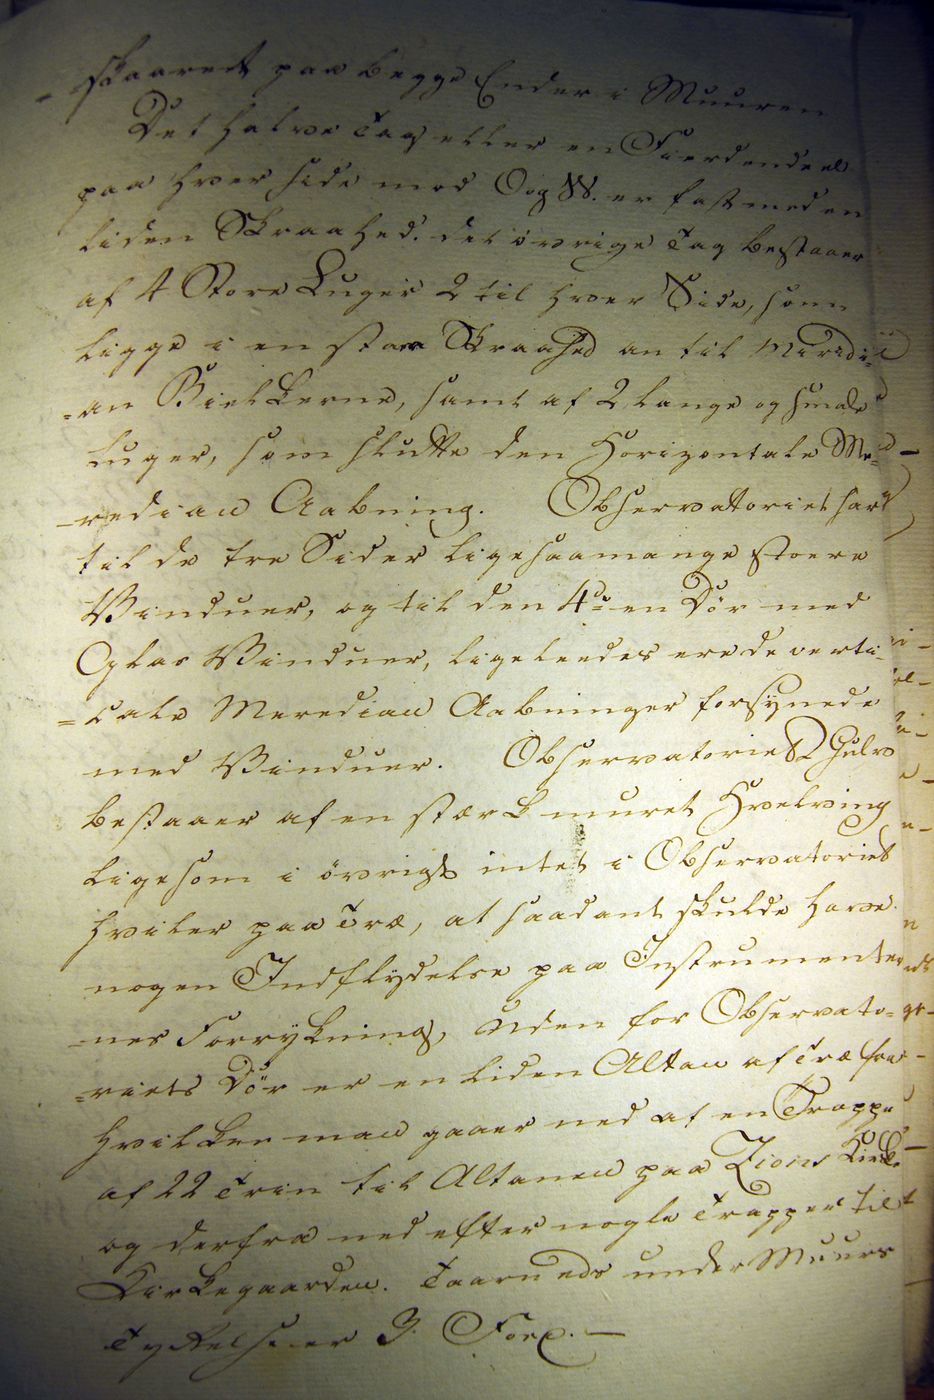 skaaret paa begge Ender i Muuren
Det halve Tag eller en Fierdendeel
paa hver side mod O og W. er fast med en
liden Skraahed. det øvrige Tag bestaaer
af 4 Store Luger 2 til hver Side, som
ligge i en stor Skraahed an til Miridi=
=an Bielkerne, samt af 2 lange og smale
luger, som slutte den Horizontale Me=
rediau Aabning. Observatoriet har
til de tre Sider ligesaamange stoere
Vinduer, og til den 4de en Dör med
Glas Vinduer, ligeleedes ere de verti=
=cale Merediau Aabninger forsÿnede
med Vinduer. Observatoriets Gulv
bestaaer af en stærk muret Hvelving
ligesom i övrigt intet i Observatoriet
hviler paa Træ, at saadant skulde have
nogen Indflÿdelse paa Instrumenter
nes Forrykning, Uden for Observato=
=riets Dör er en liden Altan af Træ fra
hvilken man gaaer ned af en Trappe
af 22 Trin til Altanen paa Zions Kirke
og derfra ned efter nogle Trapper til
Kirkegaarden. Taarneds under Muurs
Tykkelse er 3.